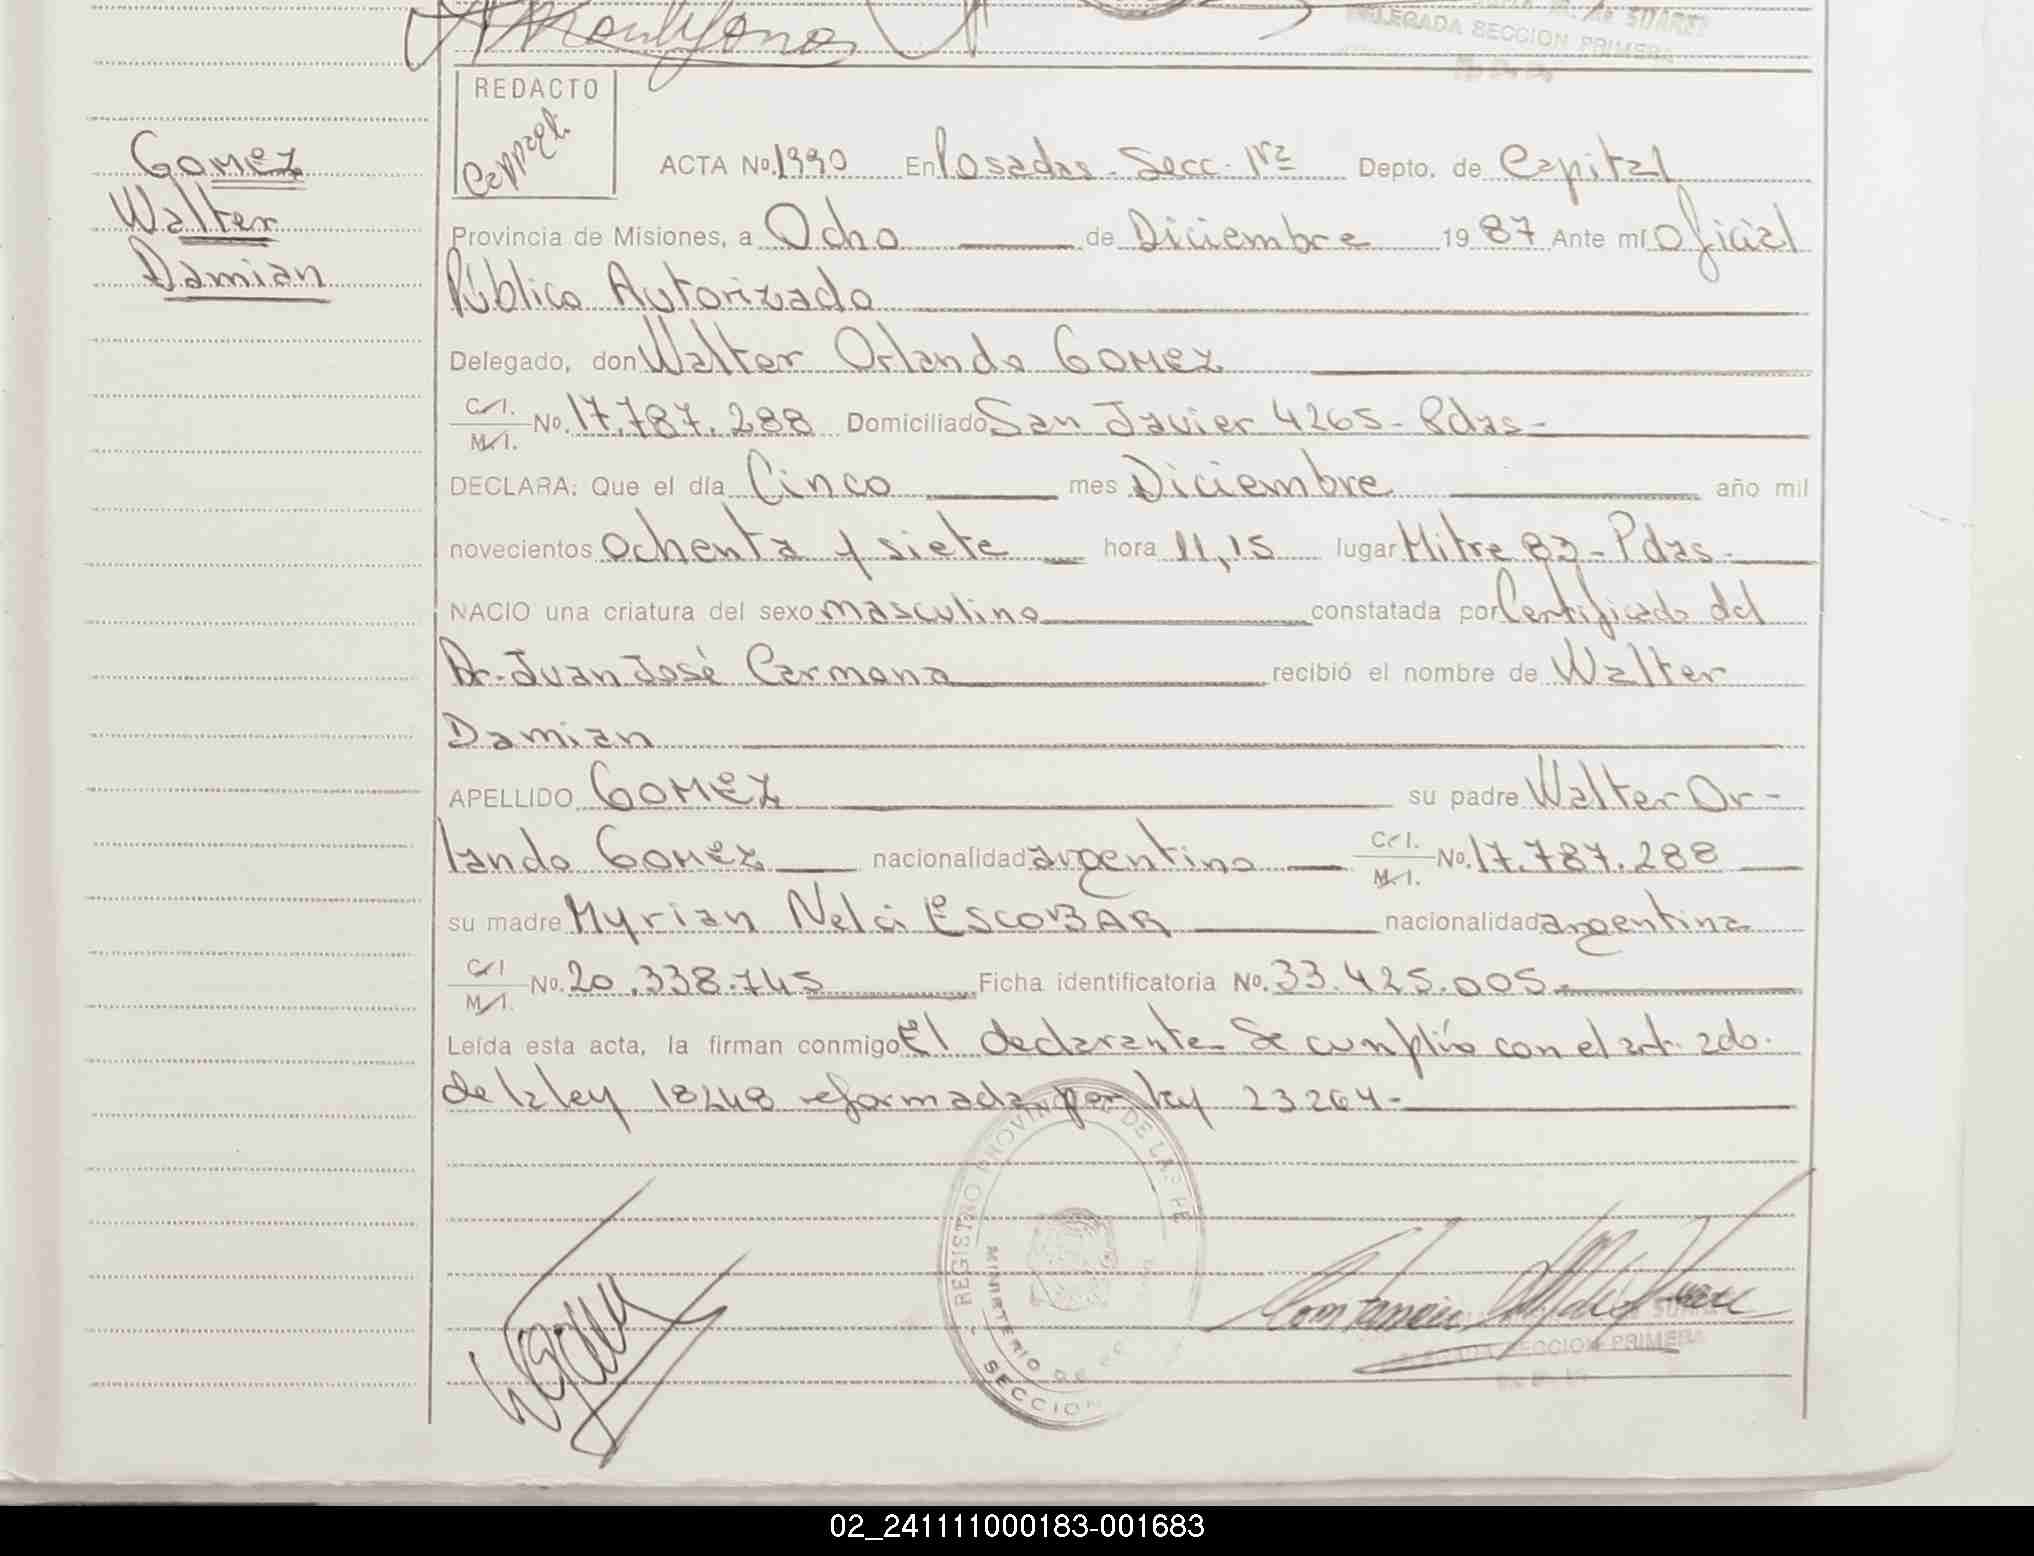 DELEGADA SECCION PRIMERA
REDACTO
Gomez
Walter
Damian
ACTA No. 1990 En Posadas - Secc. 1ra Depto. de Capital
Provincia de Misiones, a Ocho de Diciembre 1987 Ante mí Oficial
Público Autorizado
Delegado, don Walter Orlando GOMEZ
C.I.
M.I. No. 17.787.288 Domiciliado San Javier 4265 - Pdas -
DECLARA: Que el día Cinco mes Diciembre año mil
novecientos ochenta y siete hora 11,15 lugar Mitre 83 - Pdas -
NACIO una criatura del sexo masculino constatada por Certificado del
Dr. Juan José Carmona recibió el nombre de Walter
Damian
APELLIDO GOMEZ su padre Walter Or-
lando GOMEZ nacionalidad argentino C.I.
M.I. No. 17.787.288
su madre Myrian Nelci ESCOBAR nacionalidad argentina
C.I
M.I. No. 20.338.745 Ficha identificatoria No. 33.425.005.-
Leída esta acta, la firman conmigo El declarante - Se cumplió con el art. 2do.
de la ley 18248 reformada por ley 23264 -
REGISTRO PROVINCIAL DE LAS PE
MINISTERIO DE GO
SECCION
SECCION PRIMERA
02_241111000183-001683